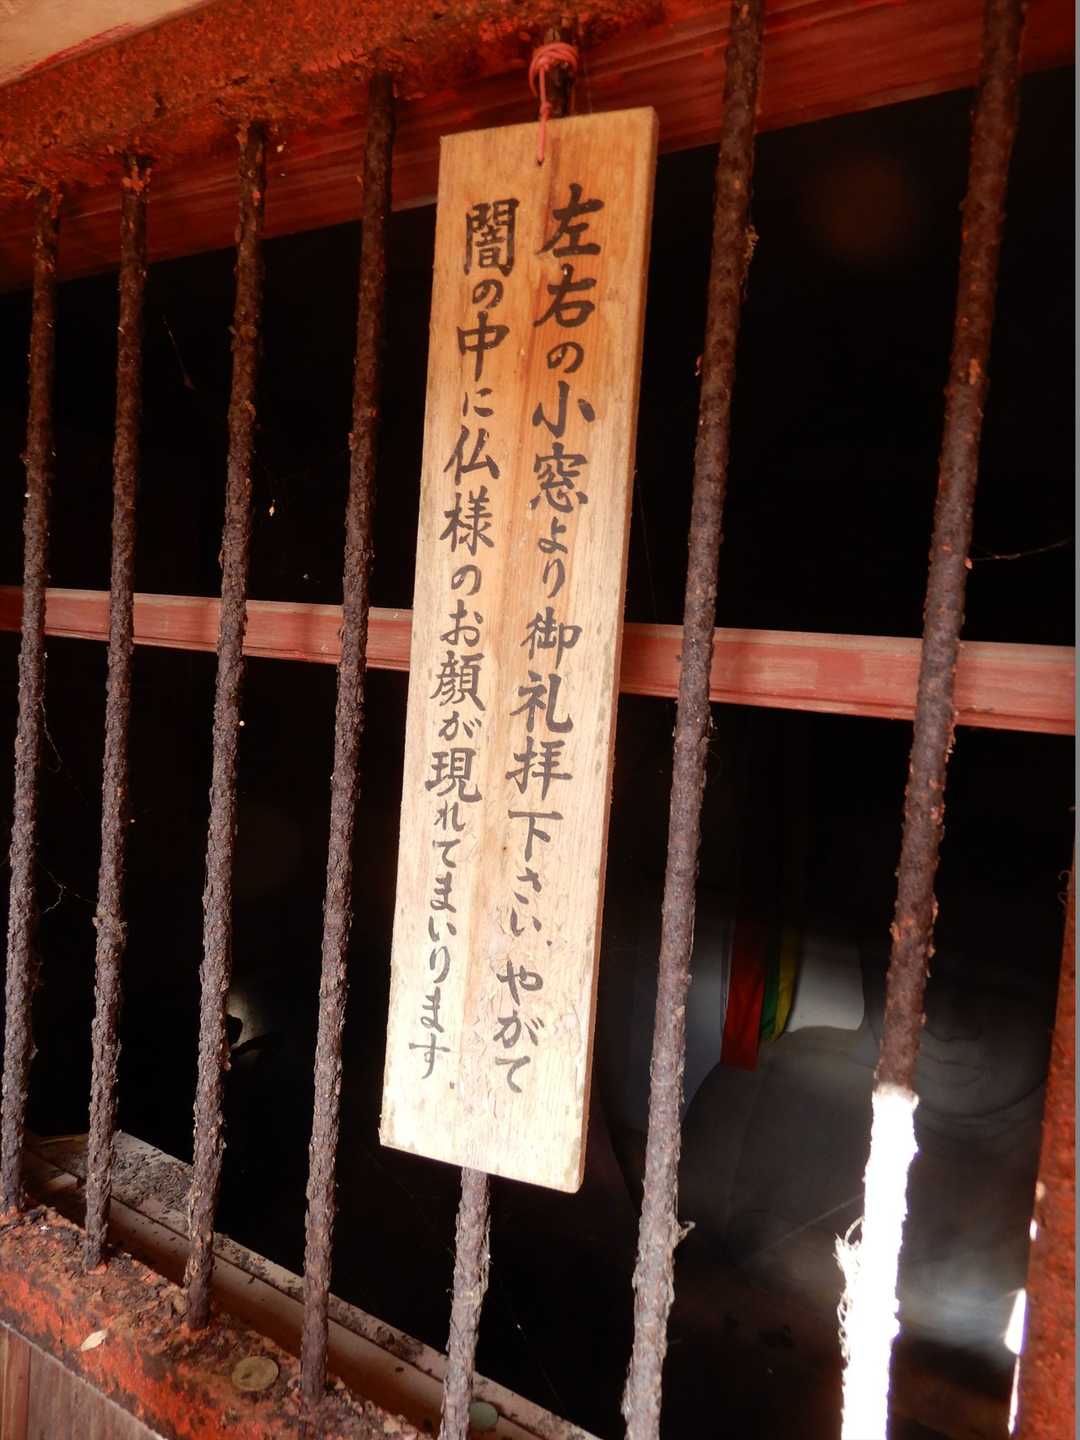 左右の小窓より御礼拝下さい、やがて
闇の中に仏様のお顔が現れてまいります。